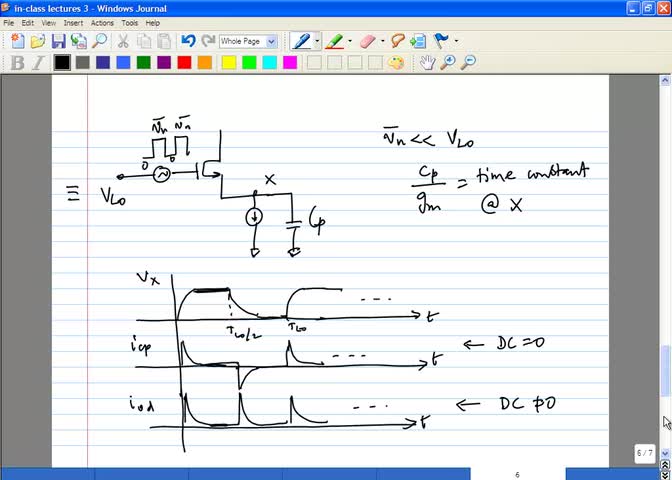 in-class lectures 3 - Windows Journal
File Edit View Insert Actions Tools Help
Whole Page
B I
v̄n v̄n
0 0
≡ VLO
X
Cp
v̄n << VLO
Cp/gm = time constant
@ X
Vx
TLO/2 TLO t
icp t ← DC = 0
iod t ← DC ≠ 0
6 / 7
6